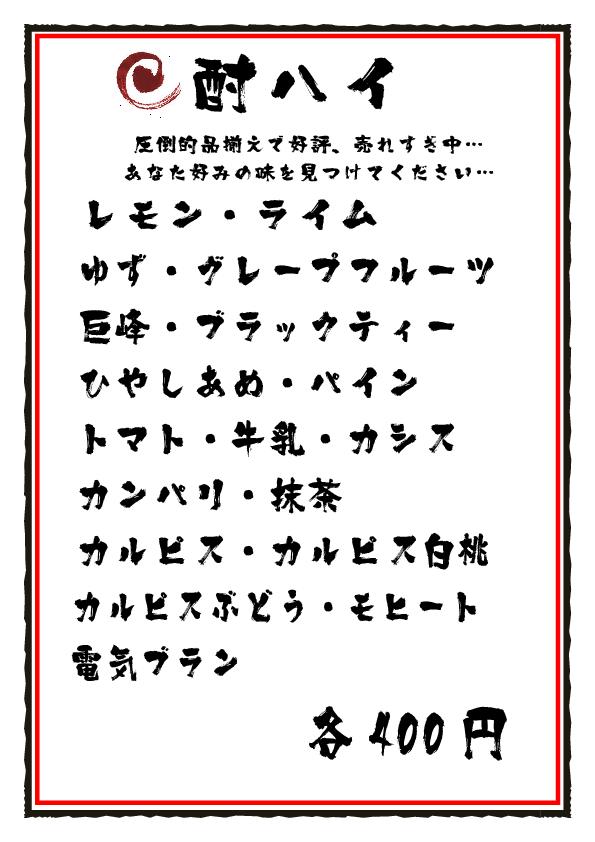 酎ハイ
圧倒的品揃えで好評、売れすぎ中…
あなた好みの味を見つけてください…
レモン・ライム
ゆず・グレープフルーツ
巨峰・ブラックティー
ひやしあめ・パイン
トマト・牛乳・カシス
カンパリ・抹茶
カルピス・カルピス白桃
カルピスぶどう・モヒート
電気ブラン
各400円